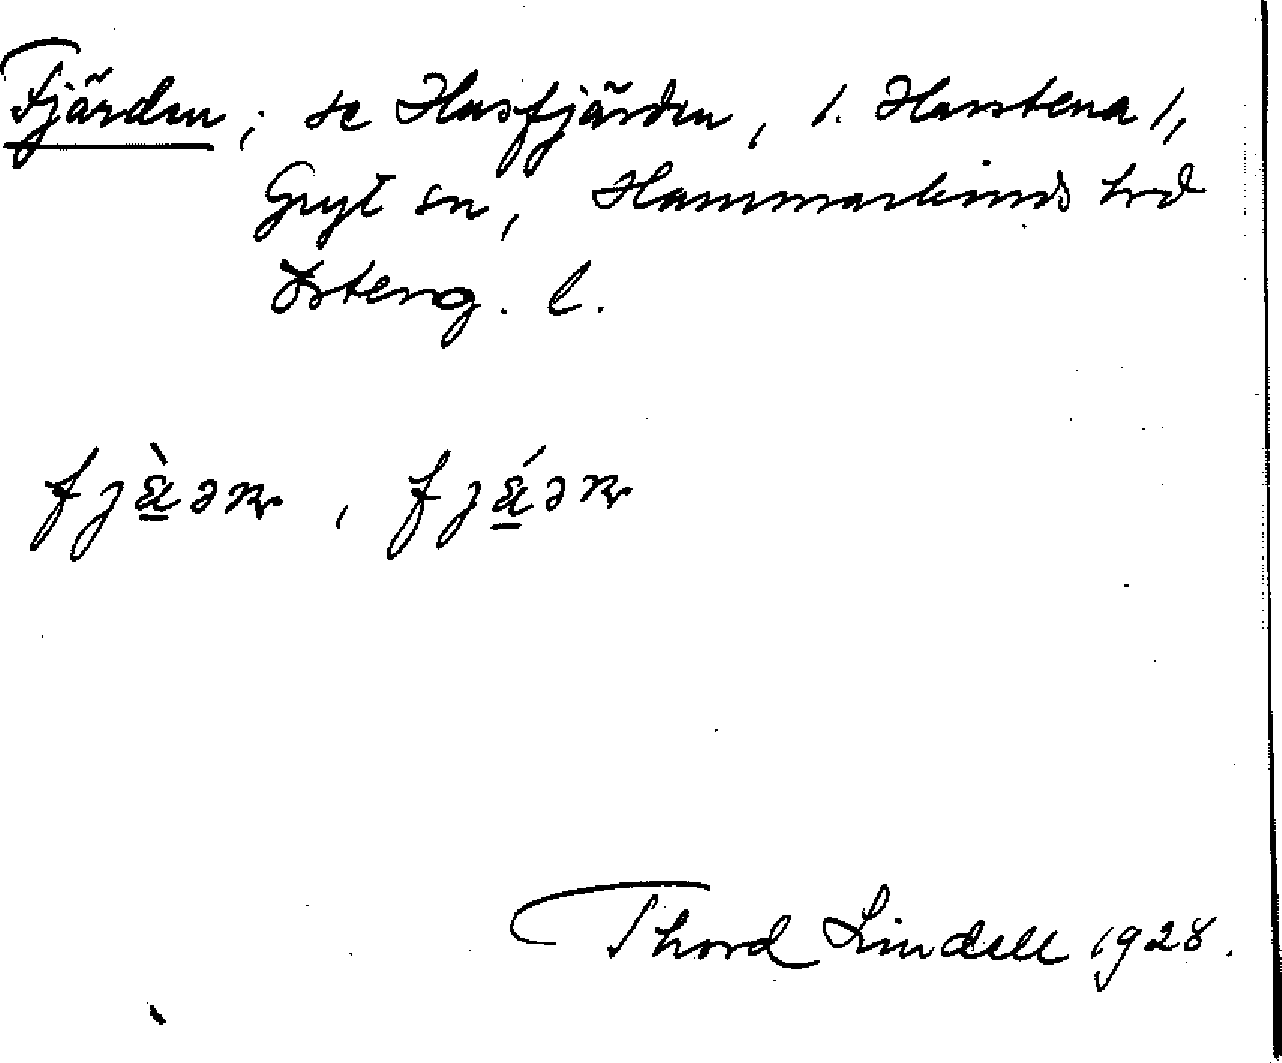 Fjärden; se Husfjärden, /. Harstena /,
Gryt sn, Hammarkinds hrd
Österg. l.
fjæ̱̀ən, fjǽ̱ən
Thord Lindell 1928.